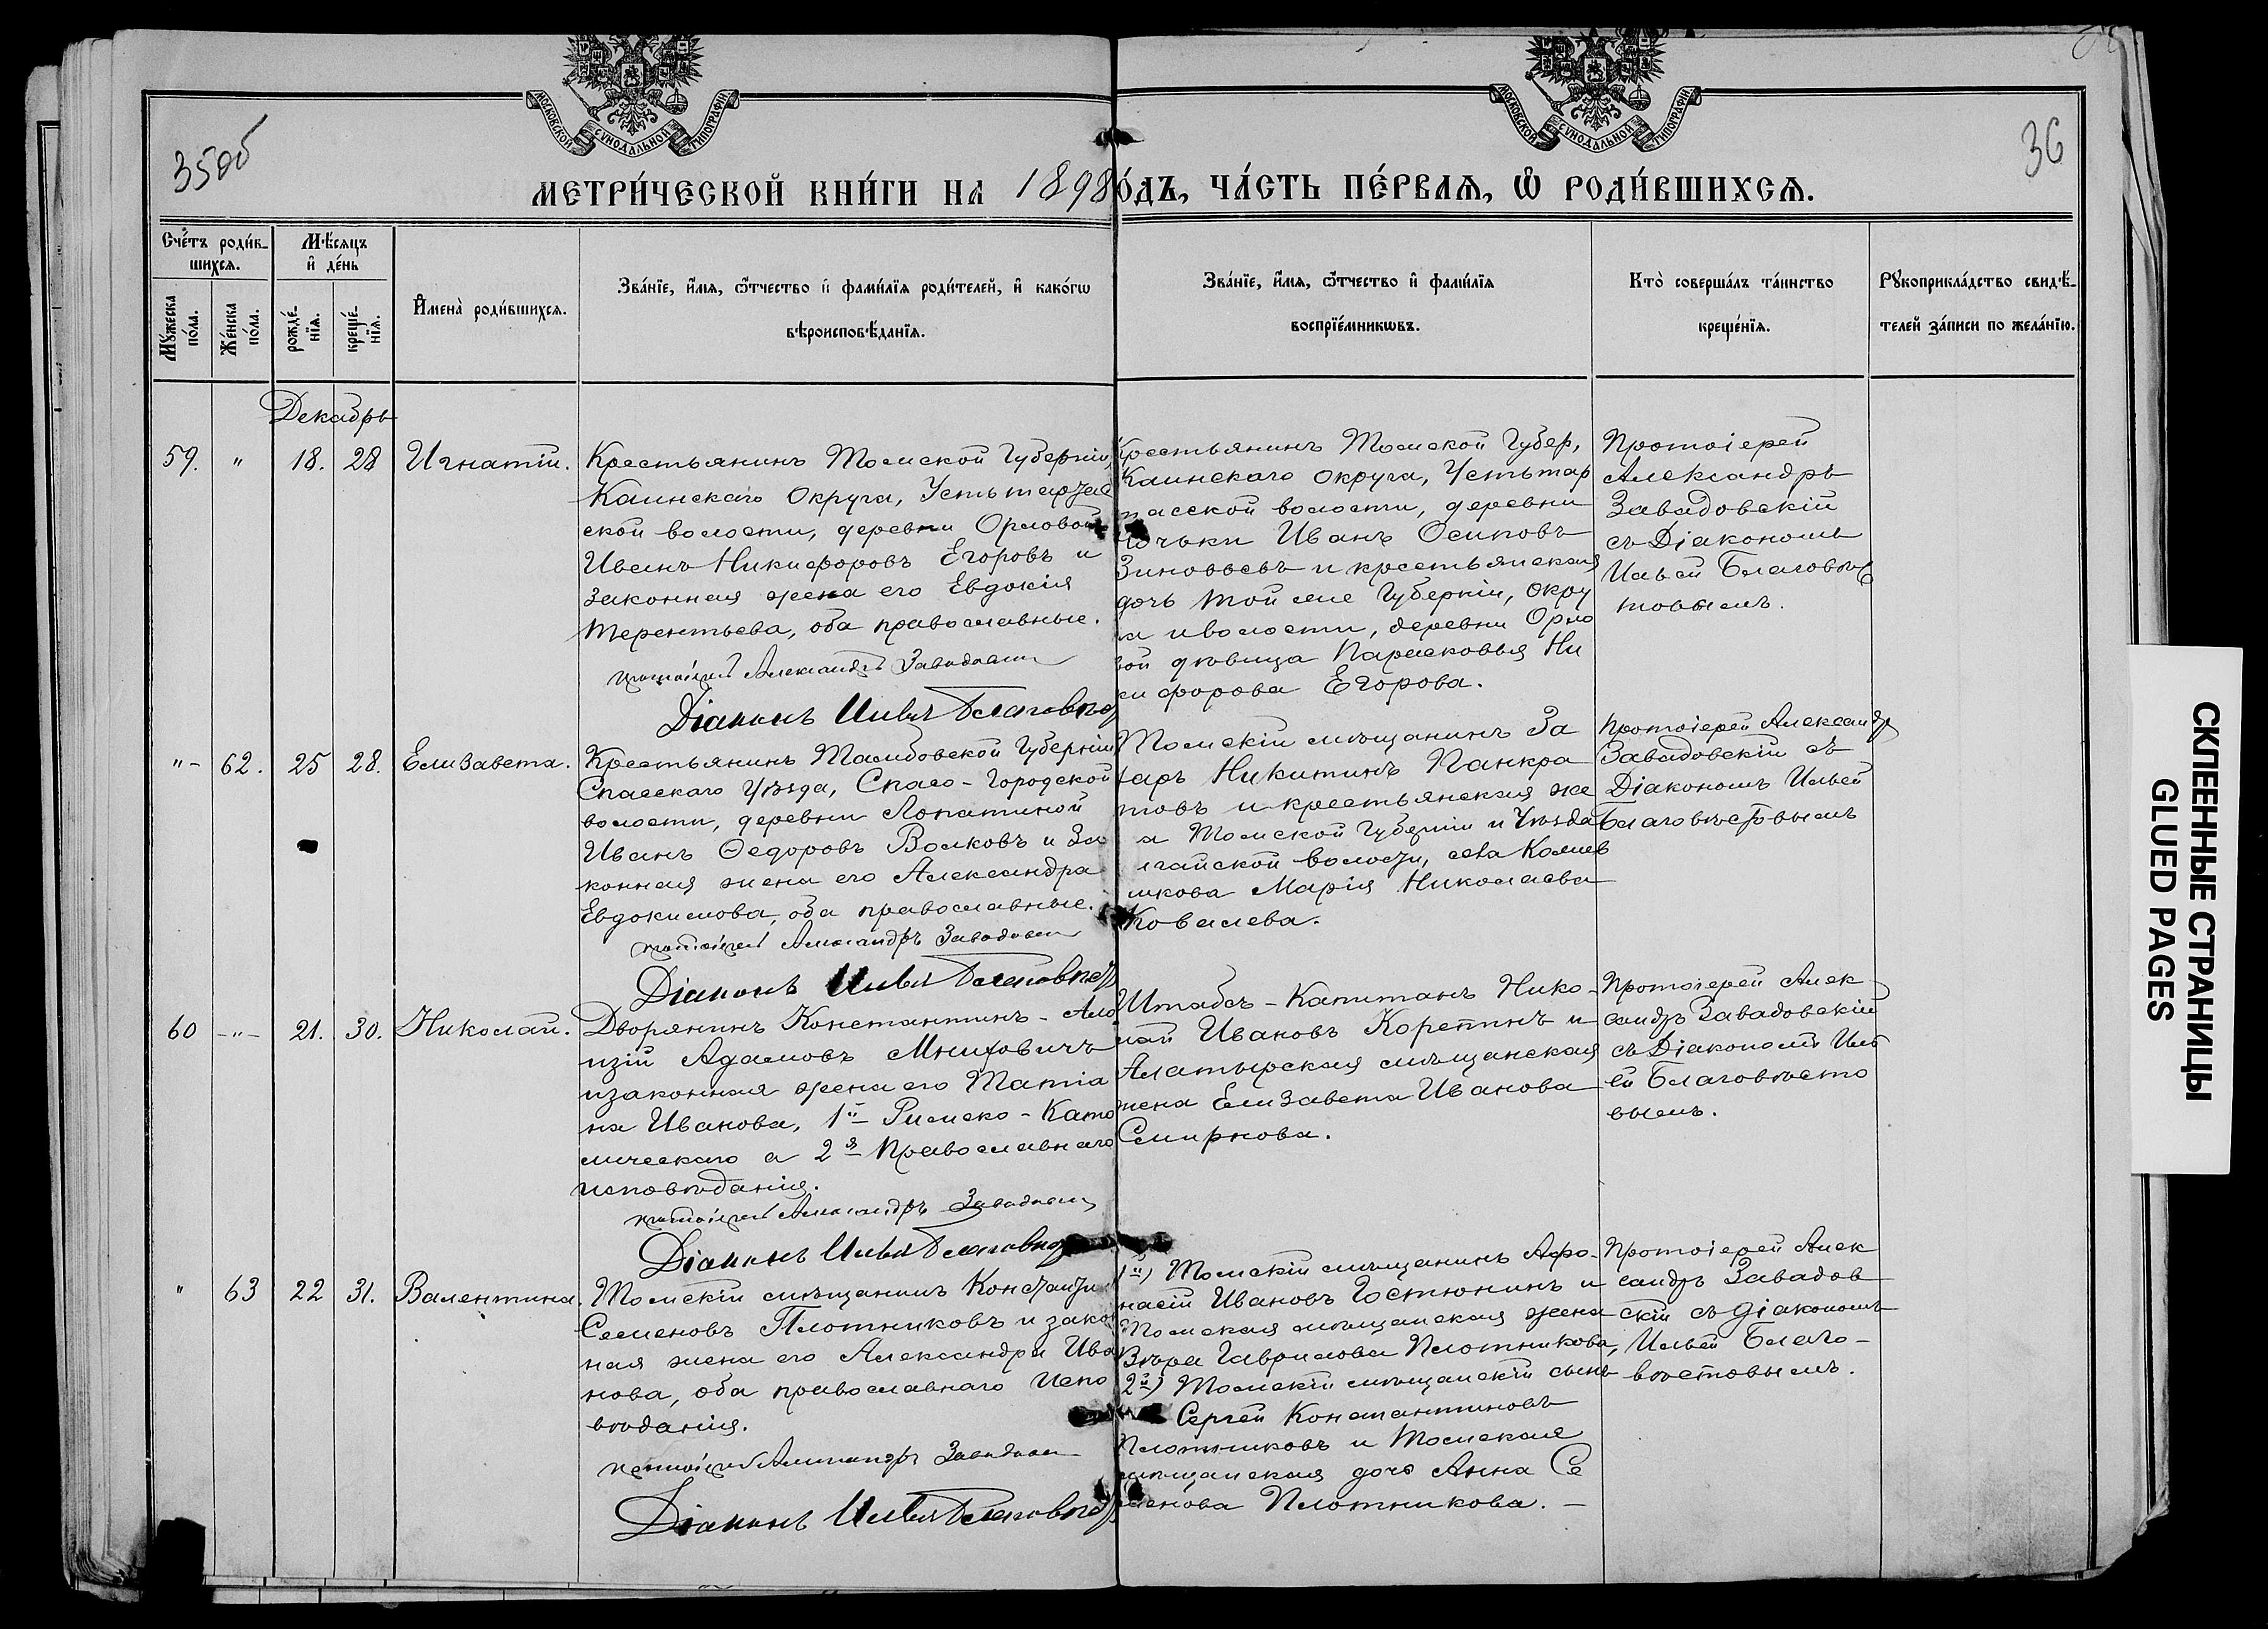 35об
36
МЕТРИ́ЧЕСКОЙ КНИ́ГИ НА 1898 О́ДЪ, ЧА́СТЬ ПЕ́РВАЯ, Ѡ РОДИ́ВШИХСЯ.
МОСКОВСКОЙ СѴНОДАЛЬНОЙ ТИПОГРАФІИ
МОСКОВСКОЙ СѴНОДАЛЬНОЙ ТИПОГРАФІИ
Сче́тъ роди́в-
шихся.
Мꙋ́жеска по́ла.
Же́нска по́ла.
Мѣ́сяцъ
и де́нь
рожде́-
нїя.
креще́-
нїя.
Имена̀ роди́вшихся.
Зва́нїе, и́мя, ѻ́тчество и фами́лїя роди́телей, и како́гѡ
вѣроисповѣ́данїя.
Зва́нїе, и́мя, ѻ́тчество и фами́лїя
воспрїе́мникѡвъ.
Кто̀ соверша́лъ та́инство
креще́нїя.
Рꙋкоприкла́дство свидѣ́-
телей за́писи по жела́нїю.
Декабрь
59. " 18. 28 Игнатій.
Крестьянинъ Томской Губерніи,
Каинскаго Округа, Устьтартас
ской волости, деревни Орловой
Иванъ Никифоровъ Егоровъ и
законная жена его Евдокія
Терентьева, оба православные.
протоіерей Александръ Завадовскій
Діаконъ Илья Благовѣст
Крестьянинъ Томской Губер,
Каинскаго округа, Устьтар
тасской волости, деревни
Иванъ Осиповъ
Зиновьевъ и крестьянская
дочь той же Губерніи, окру
га и волости, деревни Орло
вой дѣвица Парасковья Ни
кифорова Егорова.
Протоіерей
Александръ
Завадовскій
съ Діакономъ
Ильей Благовѣс
товымъ.
"- 62. 25 28. Елизавета.
Крестьянинъ Тамбовской Губерніи
Спасскаго Уѣзда, Спасо-Городской
волости, деревни Лопатиной
Иванъ Ѳедоровъ Волковъ и за
конная жена его Александра
Евдокимова, оба православные.
протоіерей Александръ Завадовскій
Діаконъ Илья Благовѣст
Томскій мѣщанинъ За
харъ Никитинъ Панкра
товъ и крестьянская же
а Томской Губерніи и Уѣзда
волости, села
Марія Николаева
Ковалева.
Протоіерей Александръ
Завадовскій съ
Діакономъ Ильей
Благовѣстовымъ
60 -"- 21. 30. Николай.
Дворянинъ Константинъ-Ало
изій Адамовъ Мниховичъ
и законная жена его Татіа
на Иванова, 1й Римско-Като
лическаго а 2я Православнаго
исповѣданія.
протоіерей Александръ Завадовскій
Діаконъ Илья Благовѣст
Штабсъ-Капитанъ Нико-
лай Ивановъ Корепинъ и
Алатырская мѣщанская
жена Елизавета Иванова
Смирнова.
Протоіерей Алек-
сандръ Завадовскій
съ Діакономъ Иль
ей Благовѣсто
вымъ.
" 63 22 31. Валентина.
Томскій мѣщанинъ Константи
Семеновъ Плотниковъ и закон
ная жена его Александра Ива
нова, оба православнаго испо
вѣданія.
протоіерей Александръ Завадовскій
Діаконъ Илья Благовѣст
1й) Томскій мѣщанинъ Афо-
насій Ивановъ Гостюнинъ и
Томская мѣщанская жена
Вѣра Гаврилова Плотникова,
2й) Томскій мѣщанскій сынъ
Сергей Константиновъ
Плотниковъ и Томская
мѣщанская дочь Анна Се
менова Плотникова. -
Протоіерей Алек
сандръ Завадов
скій съ діакономъ
Ильей Благо-
вѣстовымъ.
СКЛЕЕННЫЕ СТРАНИЦЫ
GLUED PAGES